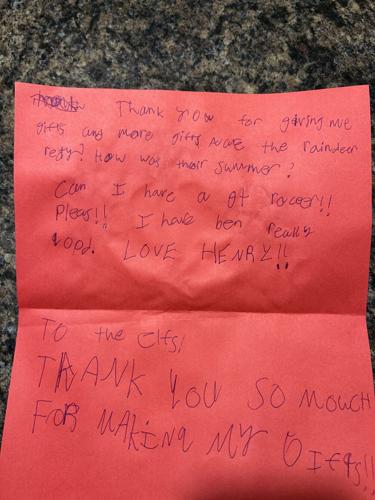 Thank you for giving me
gifts and more gifts Ncare the raindeer
redy? How was their summer?
Can I have a gt raceer!!
Pleas!! I have ben really
good. LOVE HENRY!!
To the elfs!
THANK YOU SO mouch
FOR MAKING MY GIFtS!!